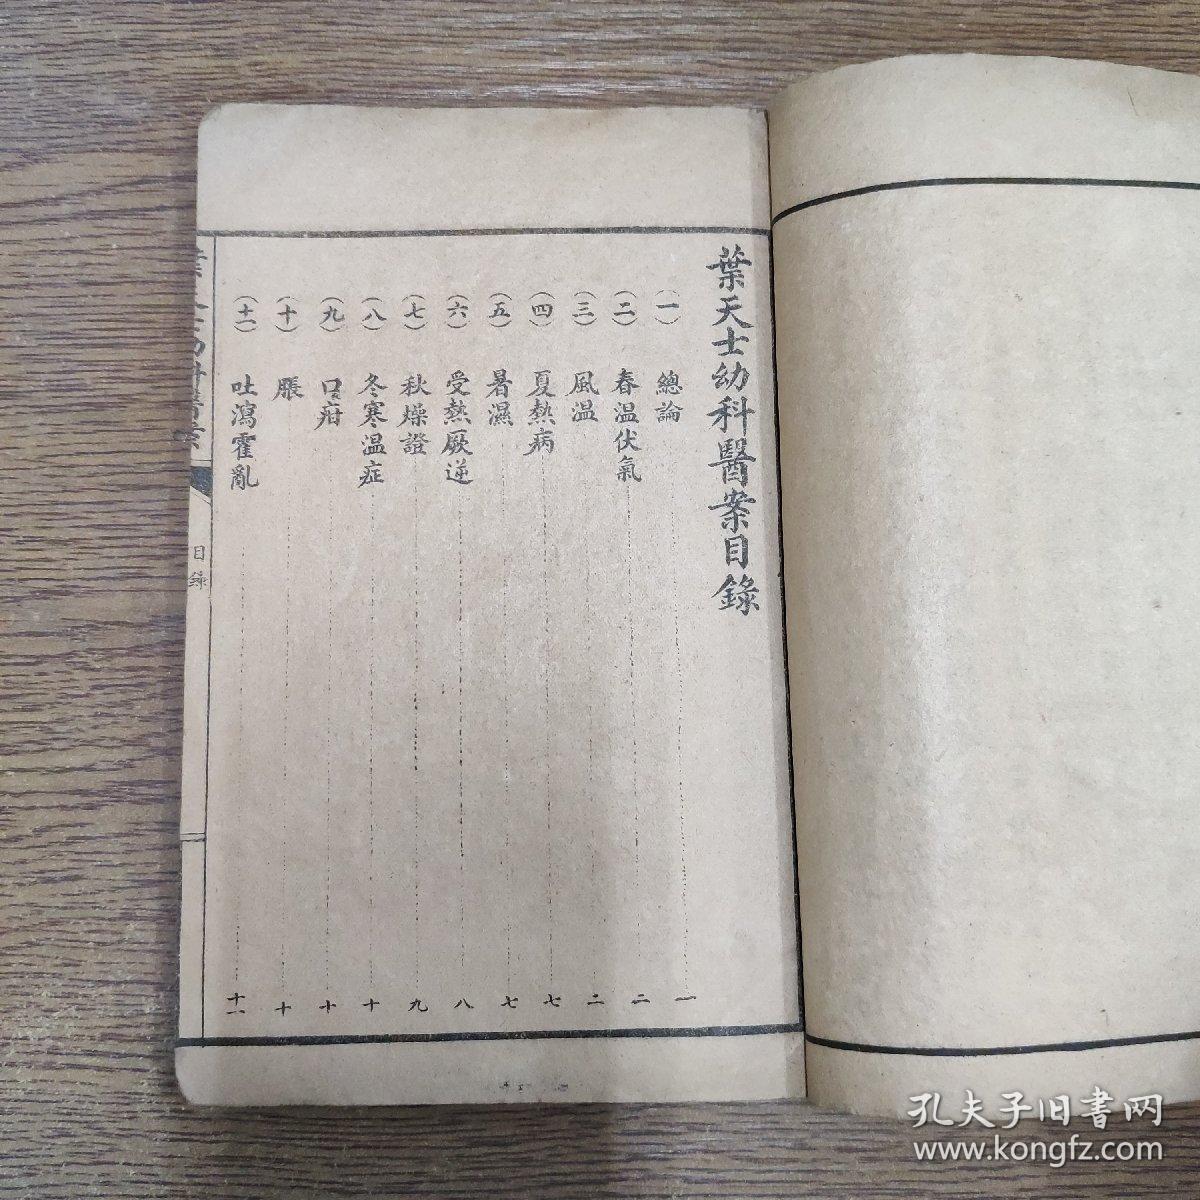 葉天士幼科醫案目錄
(一) 總論 一
(二) 春温伏氣 二
(三) 風温 二
(四) 夏熱病 七
(五) 暑濕 七
(六) 受熱厥逆 八
(七) 秋燥證 九
(八) 冬寒温症 十
(九) 口疳 十
(十) 脹 十
(十一) 吐瀉霍亂 十一
目錄
孔夫子旧書网
www.kongfz.com